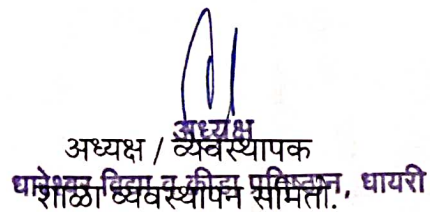 अध्यक्ष
अध्यक्ष / व्यवस्थापक
धारेश्वर विद्या व क्रीडा प्रतिष्ठान, धायरी
शाळा व्यवस्थापन समिती.